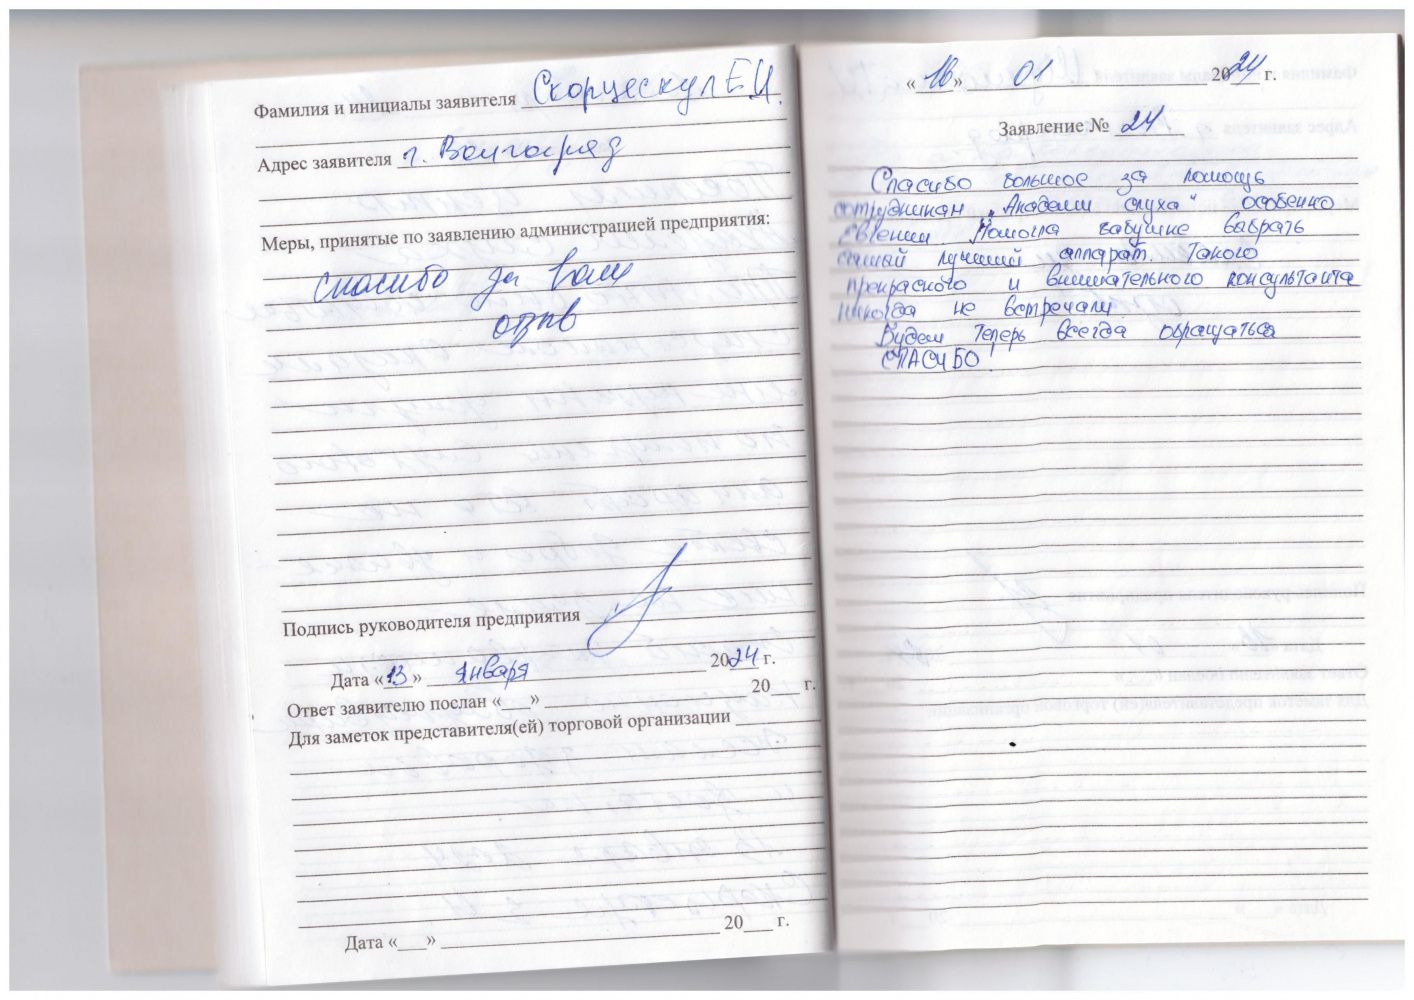 Фамилия и инициалы заявителя Скорцескул Е И.
Адрес заявителя г. Волгоград
Меры, принятые по заявлению администрацией предприятия:
спасибо за Ваш
отзыв
Подпись руководителя предприятия
Дата «13» Января 2024 г.
Ответ заявителю послан «___» 20___ г.
Для заметок представителя(ей) торговой организации
Дата «___» 20___ г.
«16» 01 2024 г.
Заявление № 24
Спасибо большое за помощь
сотрудникам „Академии слуха" особенно
Евгении. Помогла бабушке выбрать
самый лучший аппарат. Такого
прекрасного и внимательного консультанта
никогда не встречали.
Будем теперь всегда обращаться
СПАСИБО!